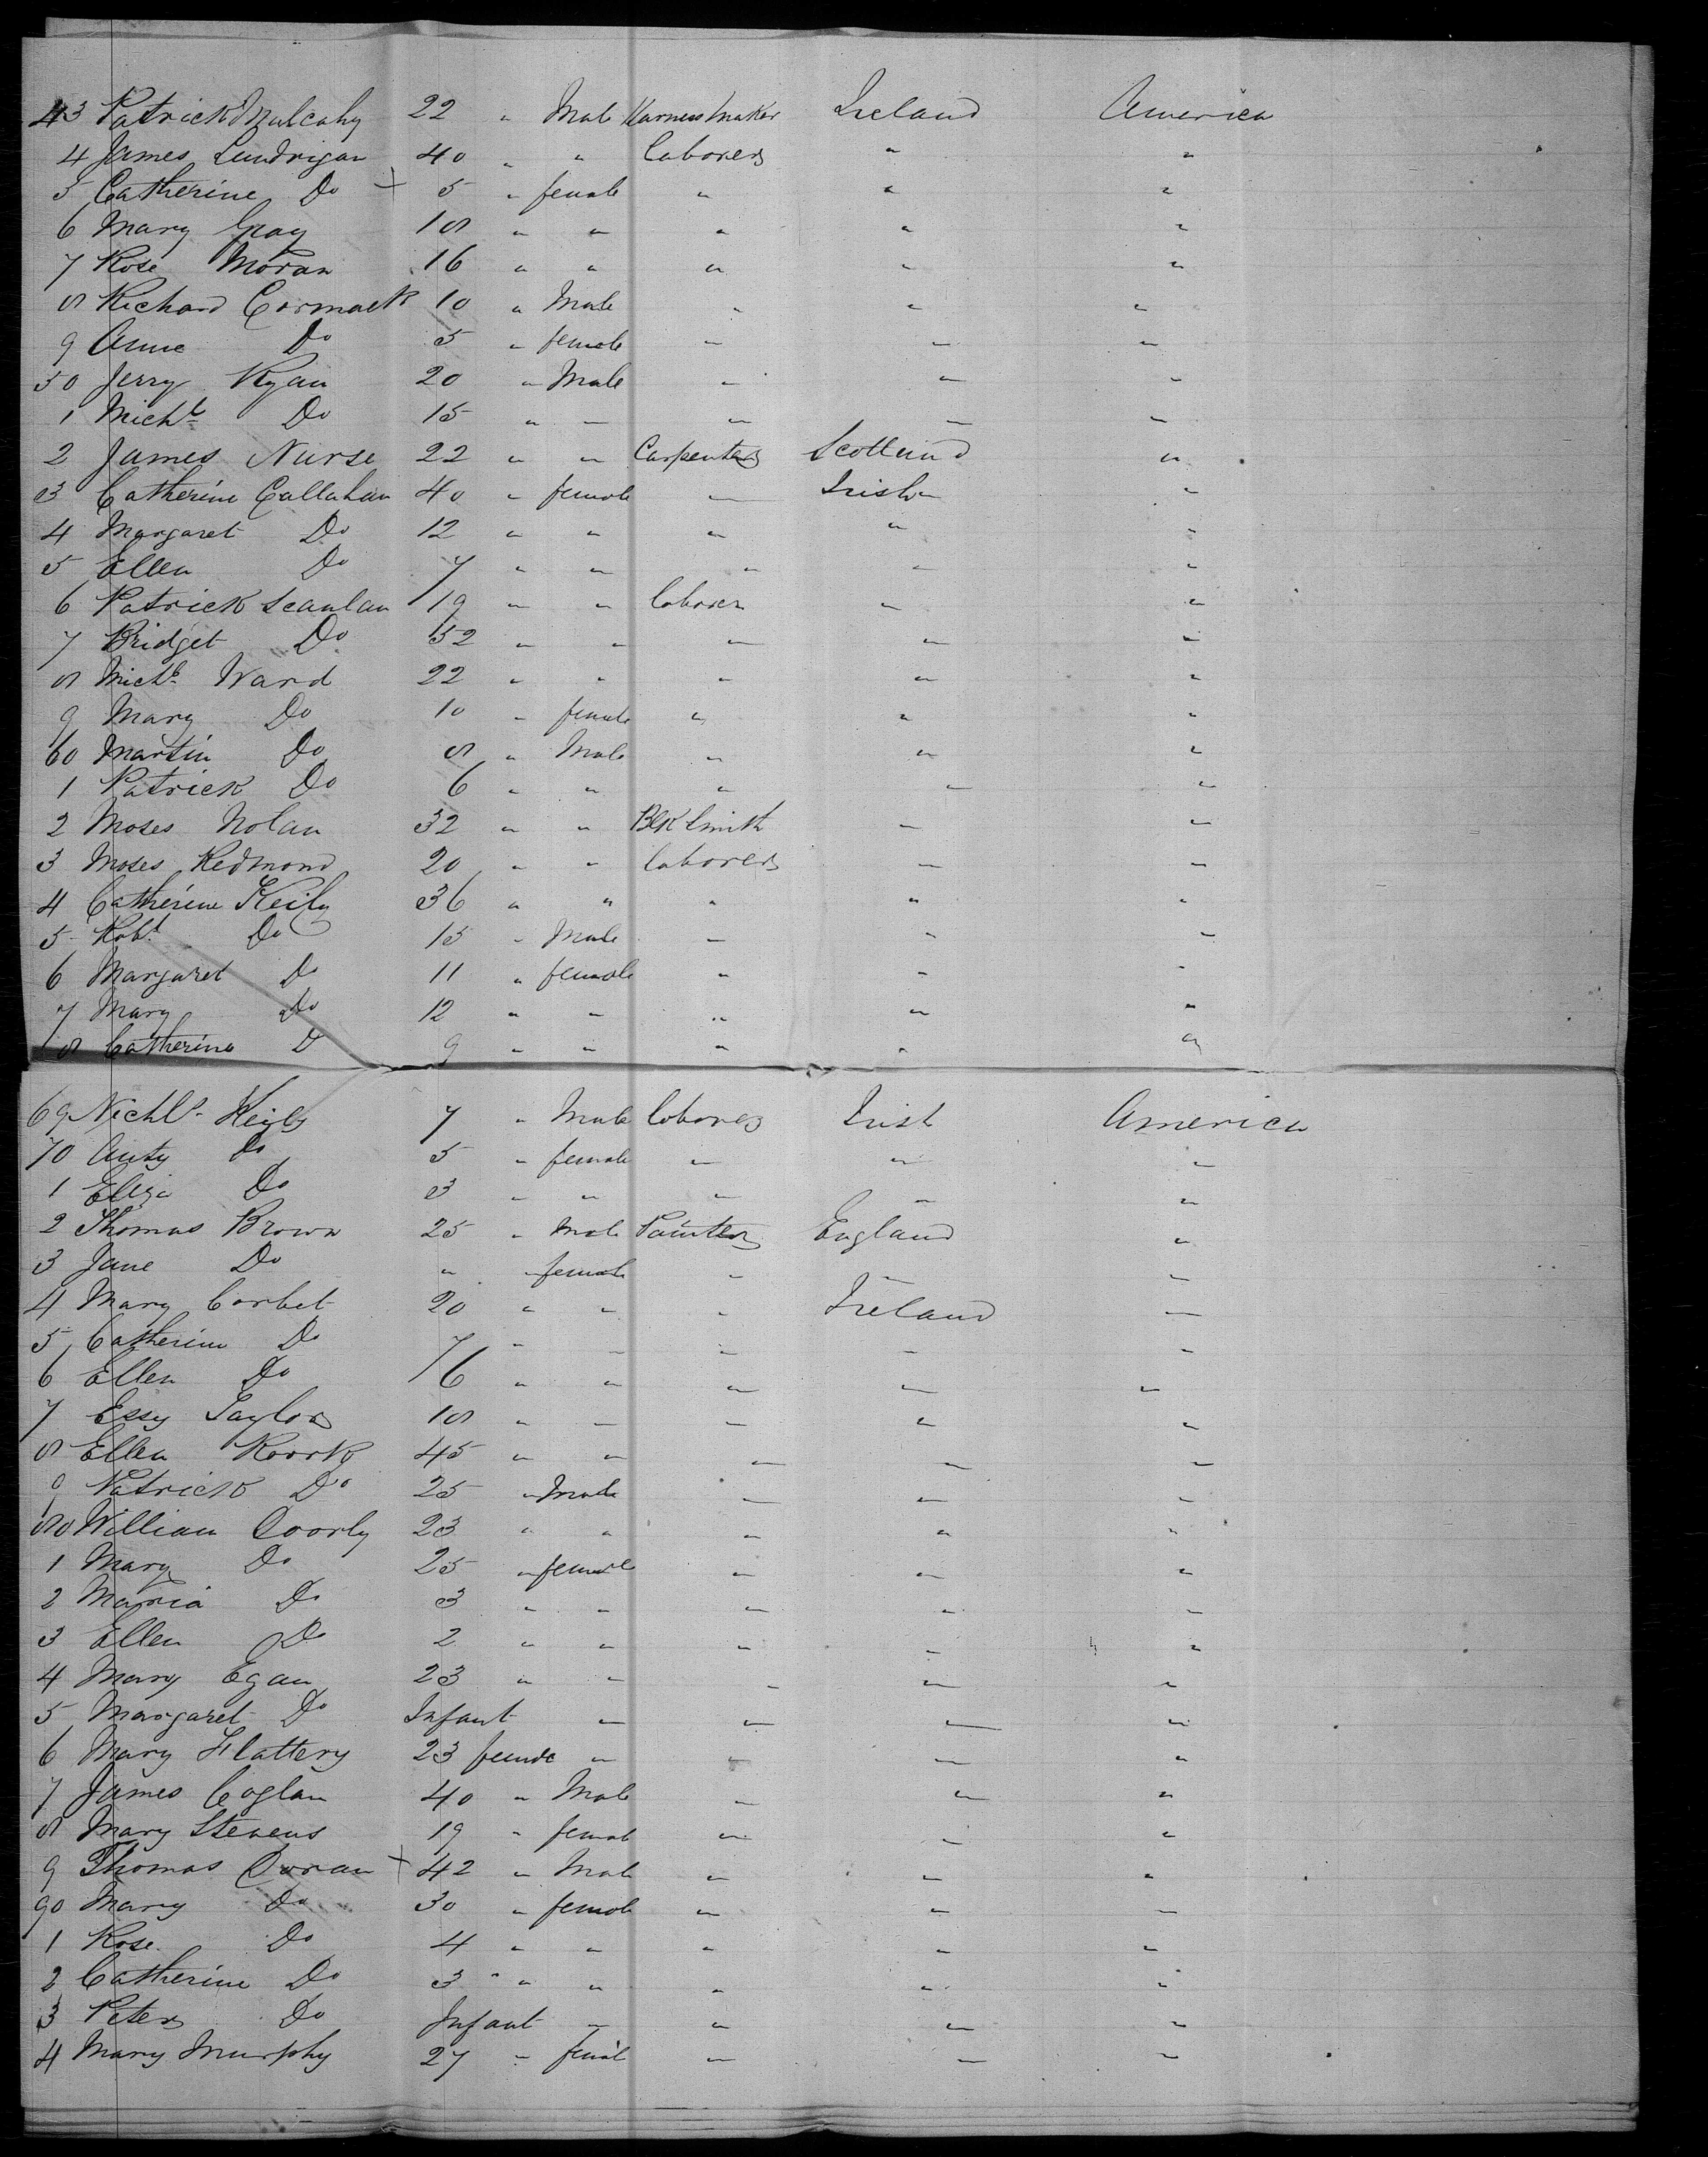 43 Patrick Mulcahy 22 " Male Harness maker Ireland America
4 James Lundrigan 40 " " laborer " "
5 Catherine Do + 5 " female " " "
6 Mary Gray 18 " " " " "
7 Rose Moran 16 " " " " "
8 Richard Cormack 10 " Male " " "
9 Anne Do 5 " female " " "
50 Jerry Ryan 20 " Male " " "
1 Michl Do 15 " " " " "
2 James Nurse 22 " " Carpenter Scotland "
3 Catherine Callahan 40 " female " Irish "
4 Margaret Do 12 " " " " "
5 Ellen Do 7 " " " " "
6 Patrick Scanlan 19 " " laborer " "
7 Bridget Do 52 " " " " "
8 Michl Ward 22 " " " " "
9 Mary Do 10 " female " " "
60 Martin Do 8 " Male " " "
1 Patrick Do 6 " " " " "
2 Moses Nolan 32 " " Blk Smith " "
3 Moses Redmond 20 " " laborer " "
4 Catherine Keily 36 " " " " "
5 Robt Do 15 " Male " " "
6 Margaret Do 11 " female " " "
7 Mary Do 12 " " " " "
8 Catherine D 9 " " " " "
69 Nichls Keily 7 " Male laborer Irish America
70 Anty Do 5 " female " " "
1 Eliza Do 3 " " " " "
2 Thomas Brown 25 " Male Painter England "
3 Jane Do " " female " " "
4 Mary Corbet 20 " " " Ireland "
5 Catherine Do 7 " " " " "
6 Ellen Do 6 " " " " "
7 Essy Taylor 18 " " " " "
8 Ellen Roork 45 " " " " "
9 Patrick Do 25 " Male " " "
80 William Doorly 23 " " " " "
1 Mary Do 25 " female " " "
2 Maria Do 3 " " " " "
3 Ellen Do 2 " " " " "
4 Mary Egan 23 " " " " "
5 Margaret Do Infant " " " "
6 Mary Flattery 23 female " " " "
7 James Coglan 40 " Male " " "
8 Mary Stevens 19 " female " " "
9 Thomas Doran + 42 " Male " " "
90 Mary Do 30 " female " " "
1 Rose Do 4 " " " " "
2 Catherine Do 3 " " " " "
3 Peter Do Infant " " " "
4 Mary Murphy 27 " female " " "